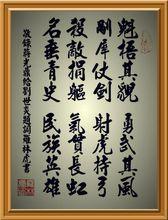 魁梧其貌 勇武其風
犀仗劍 射虎持弓
殺敵捐軀 氣貫長虹
名垂青史 民族英雄
敬錄蔣光鼐給劉世炎題詞羅林虎書